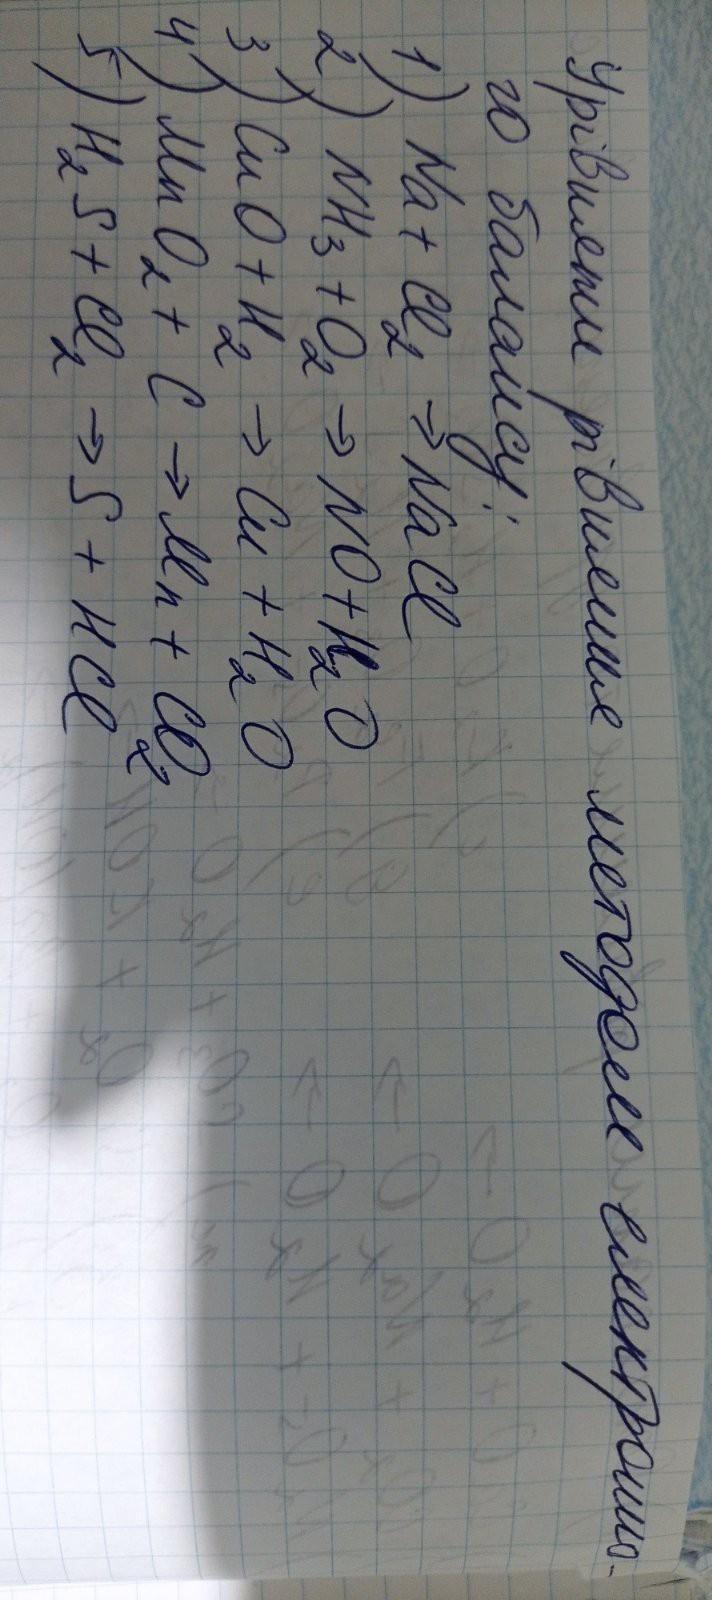 Урівняти рівняння методом електронно-
го балансу:
1) Na + Cl₂ → NaCl
2) NH₃ + O₂ → NO + H₂O
3) CuO + H₂ → Cu + H₂O
4) MnO₂ + C → Mn + CO₂
5) H₂S + Cl₂ → S + HCl